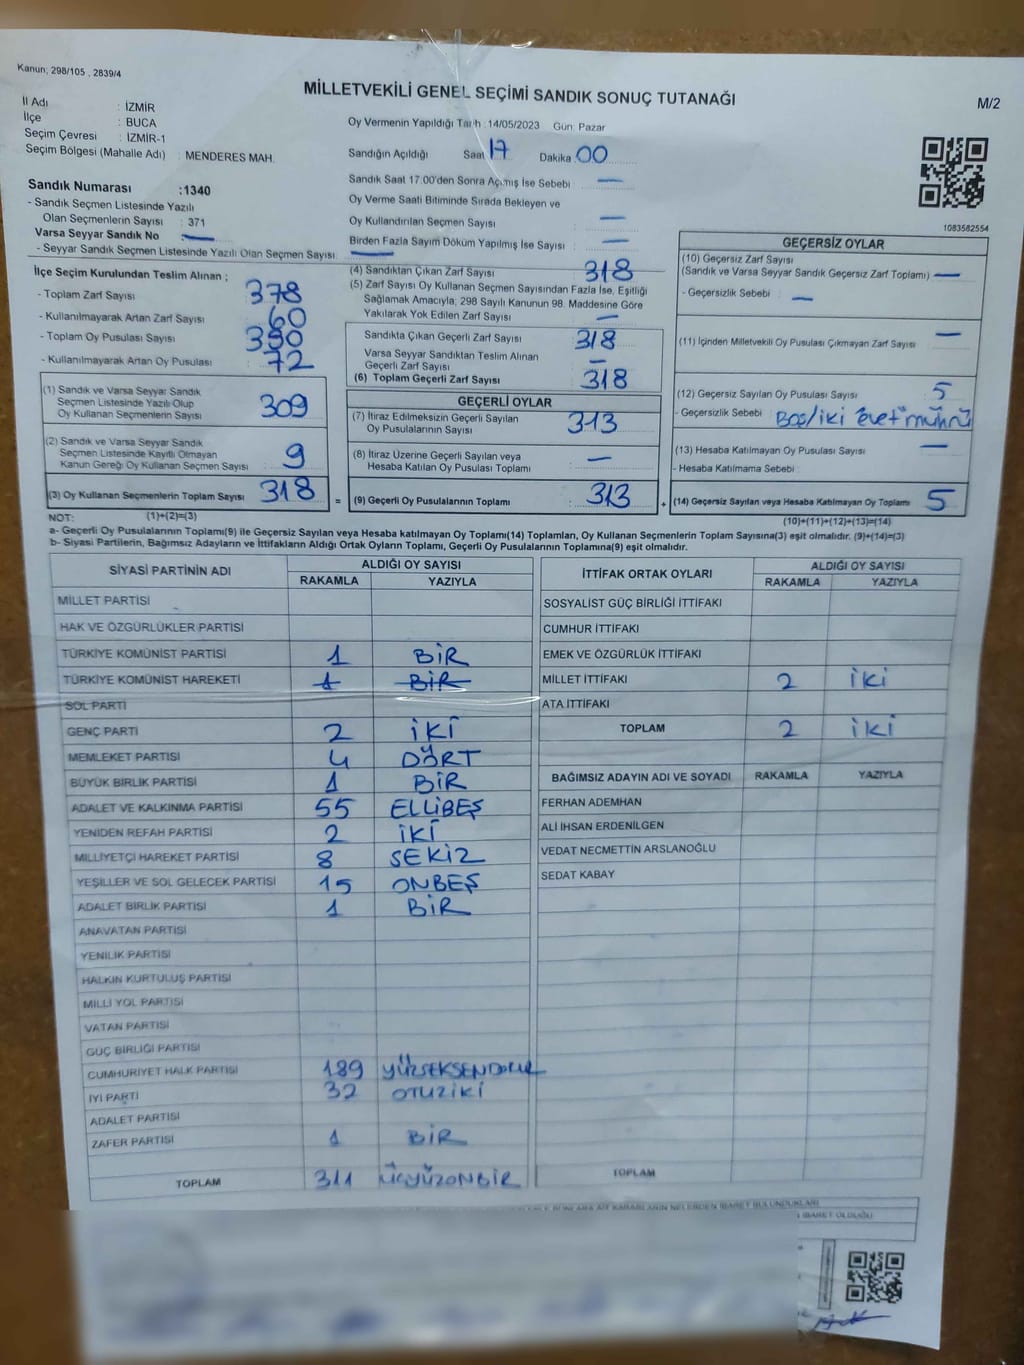 Kanun; 298/105 , 2839/4
MİLLETVEKİLİ GENEL SEÇİMİ SANDIK SONUÇ TUTANAĞI
M/2
İl Adı : İZMİR
İlçe : BUCA
Seçim Çevresi : İZMİR-1
Seçim Bölgesi (Mahalle Adı) : MENDERES MAH.
Oy Vermenin Yapıldığı Tarih : 14/05/2023 Gün: Pazar
Sandığın Açıldığı Saat 17 Dakika 00
Sandık Saat 17.00'den Sonra Açılmış İse Sebebi : —
Oy Verme Saati Bitiminde Sırada Bekleyen ve
Oy Kullandırılan Seçmen Sayısı : —
Birden Fazla Sayım Döküm Yapılmış İse Sayısı : —
Sandık Numarası :1340
- Sandık Seçmen Listesinde Yazılı
Olan Seçmenlerin Sayısı : 371
Varsa Seyyar Sandık No : —
- Seyyar Sandık Seçmen Listesinde Yazılı Olan Seçmen Sayısı: —
1083582554
İlçe Seçim Kurulundan Teslim Alınan ;
- Toplam Zarf Sayısı : 378
- Kullanılmayarak Artan Zarf Sayısı : 60
- Toplam Oy Pusulası Sayısı : 390
- Kullanılmayarak Artan Oy Pusulası : 72
(1) Sandık ve Varsa Seyyar Sandık
Seçmen Listesinde Yazılı Olup
Oy Kullanan Seçmenlerin Sayısı : 309
(2) Sandık ve Varsa Seyyar Sandık
Seçmen Listesinde Kayıtlı Olmayan
Kanun Gereği Oy Kullanan Seçmen Sayısı : 9
(3) Oy Kullanan Seçmenlerin Toplam Sayısı : 318
(4) Sandıktan Çıkan Zarf Sayısı : 318
(5) Zarf Sayısı Oy Kullanan Seçmen Sayısından Fazla İse, Eşitliği
Sağlamak Amacıyla; 298 Sayılı Kanunun 98. Maddesine Göre
Yakılarak Yok Edilen Zarf Sayısı : —
Sandıkta Çıkan Geçerli Zarf Sayısı : 318
Varsa Seyyar Sandıktan Teslim Alınan
Geçerli Zarf Sayısı : —
(6) Toplam Geçerli Zarf Sayısı : 318
GEÇERLİ OYLAR
(7) İtiraz Edilmeksizin Geçerli Sayılan
Oy Pusulalarının Sayısı : 313
(8) İtiraz Üzerine Geçerli Sayılan veya
Hesaba Katılan Oy Pusulası Toplamı : —
= (9) Geçerli Oy Pusulalarının Toplamı : 313
GEÇERSİZ OYLAR
(10) Geçersiz Zarf Sayısı
(Sandık ve Varsa Seyyar Sandık Geçersiz Zarf Toplamı) : —
- Geçersizlik Sebebi : —
(11) İçinden Milletvekili Oy Pusulası Çıkmayan Zarf Sayısı : —
(12) Geçersiz Sayılan Oy Pusulası Sayısı : 5
- Geçersizlik Sebebi : Boş/iki "evet" mührü
(13) Hesaba Katılmayan Oy Pusulası Sayısı : —
- Hesaba Katılmama Sebebi :
+ (14) Geçersiz Sayılan veya Hesaba Katılmayan Oy Toplamı : 5
NOT: (1)+(2)=(3)
(10)+(11)+(12)+(13)=(14)
a- Geçerli Oy Pusulalarının Toplamı(9) ile Geçersiz Sayılan veya Hesaba katılmayan Oy Toplamı(14) Toplamları, Oy Kullanan Seçmenlerin Toplam Sayısına(3) eşit olmalıdır. (9)+(14)=(3)
b- Siyasi Partilerin, Bağımsız Adayların ve İttifakların Aldığı Ortak Oyların Toplamı, Geçerli Oy Pusulalarının Toplamına(9) eşit olmalıdır.
SİYASİ PARTİNİN ADI
ALDIĞI OY SAYISI
RAKAMLA YAZIYLA
MİLLET PARTİSİ
HAK VE ÖZGÜRLÜKLER PARTİSİ
TÜRKİYE KOMÜNİST PARTİSİ 1 BİR
TÜRKİYE KOMÜNİST HAREKETİ 1 BİR
SOL PARTİ
GENÇ PARTİ 2 İKİ
MEMLEKET PARTİSİ 4 DÖRT
BÜYÜK BİRLİK PARTİSİ 1 BİR
ADALET VE KALKINMA PARTİSİ 55 ELLİBEŞ
YENİDEN REFAH PARTİSİ 2 İKİ
MİLLİYETÇİ HAREKET PARTİSİ 8 SEKİZ
YEŞİLLER VE SOL GELECEK PARTİSİ 15 ONBEŞ
ADALET BİRLİK PARTİSİ 1 BİR
ANAVATAN PARTİSİ
YENİLİK PARTİSİ
HALKIN KURTULUŞ PARTİSİ
MİLLİ YOL PARTİSİ
VATAN PARTİSİ
GÜÇ BİRLİĞİ PARTİSİ
CUMHURİYET HALK PARTİSİ 189 YÜZSEKSENDOKUZ
İYİ PARTİ 32 OTUZİKİ
ADALET PARTİSİ
ZAFER PARTİSİ 1 BİR
TOPLAM 311 ÜÇYÜZONBİR
İTTİFAK ORTAK OYLARI
ALDIĞI OY SAYISI
RAKAMLA YAZIYLA
SOSYALİST GÜÇ BİRLİĞİ İTTİFAKI
CUMHUR İTTİFAKI
EMEK VE ÖZGÜRLÜK İTTİFAKI
MİLLET İTTİFAKI 2 İKİ
ATA İTTİFAKI
TOPLAM 2 İKİ
BAĞIMSIZ ADAYIN ADI VE SOYADI RAKAMLA YAZIYLA
FERHAN ADEMHAN
ALİ İHSAN ERDENİLGEN
VEDAT NECMETTİN ARSLANOĞLU
SEDAT KABAY
TOPLAM